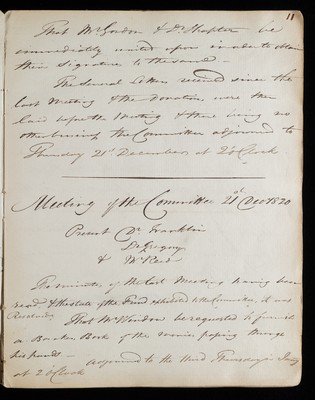 11
That Mr Gordon & Dr Shapter be
immediately waited upon in order to obtain
their signature to the same –
The Several Letters received since the
last Meeting & the Donations were then
laid before the Meeting & there being no
other business the Committee adjourned to
Thursday 21st December at 2 oClock
Meeting of the Committee 21st Decr 1820
Present Dr Franklin
Dr Gregory
& Mr Reid
The minutes of the last Meeting having been
read & the state of the Fund exhibited to the Committee, it was
Resolved
That Mr be requested to furnish
a Bankers Book of the monies passing through
his hands –
adjourned to the third Thursday in Jany
at 2 oClock